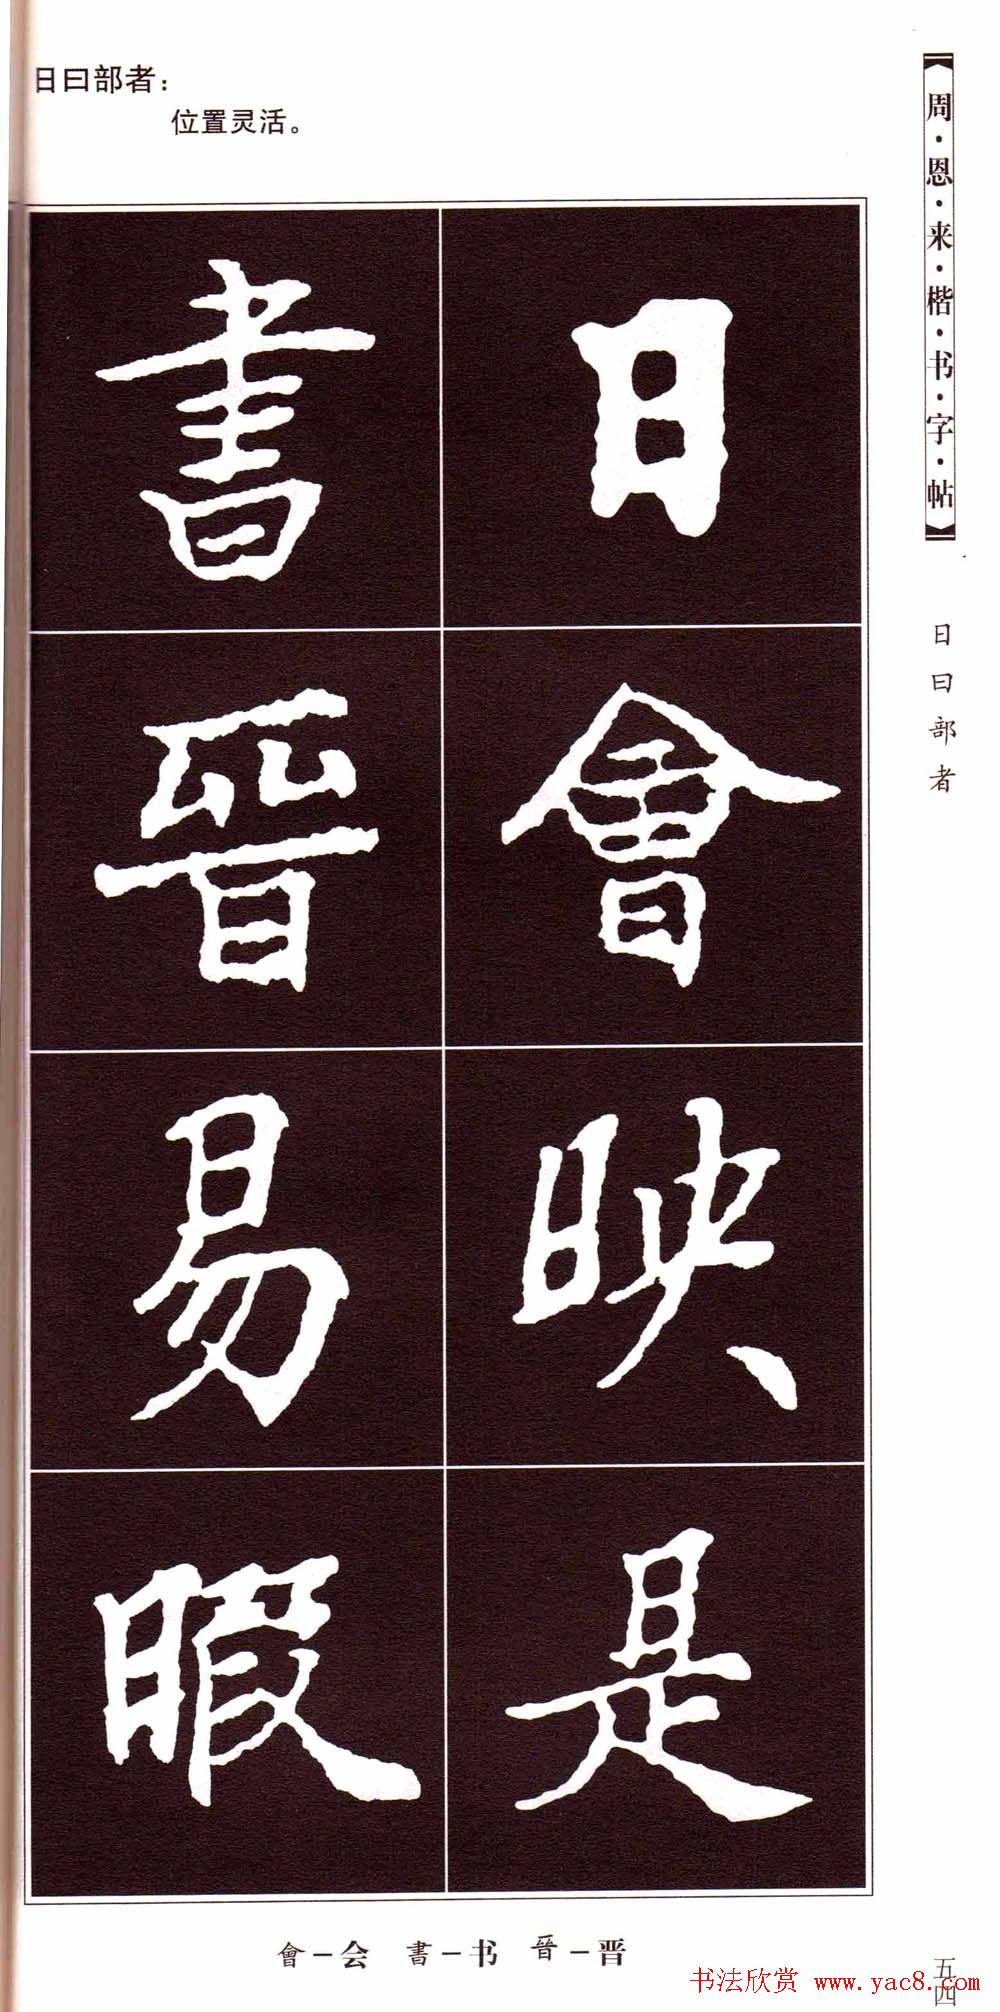 日曰部者：
位置灵活。
【周·恩·来·楷·书·字·帖】
日曰部者
日會映是
書晉易暇
會－会 書－书 晉－晋
五四
书法欣赏 www.yac8.com